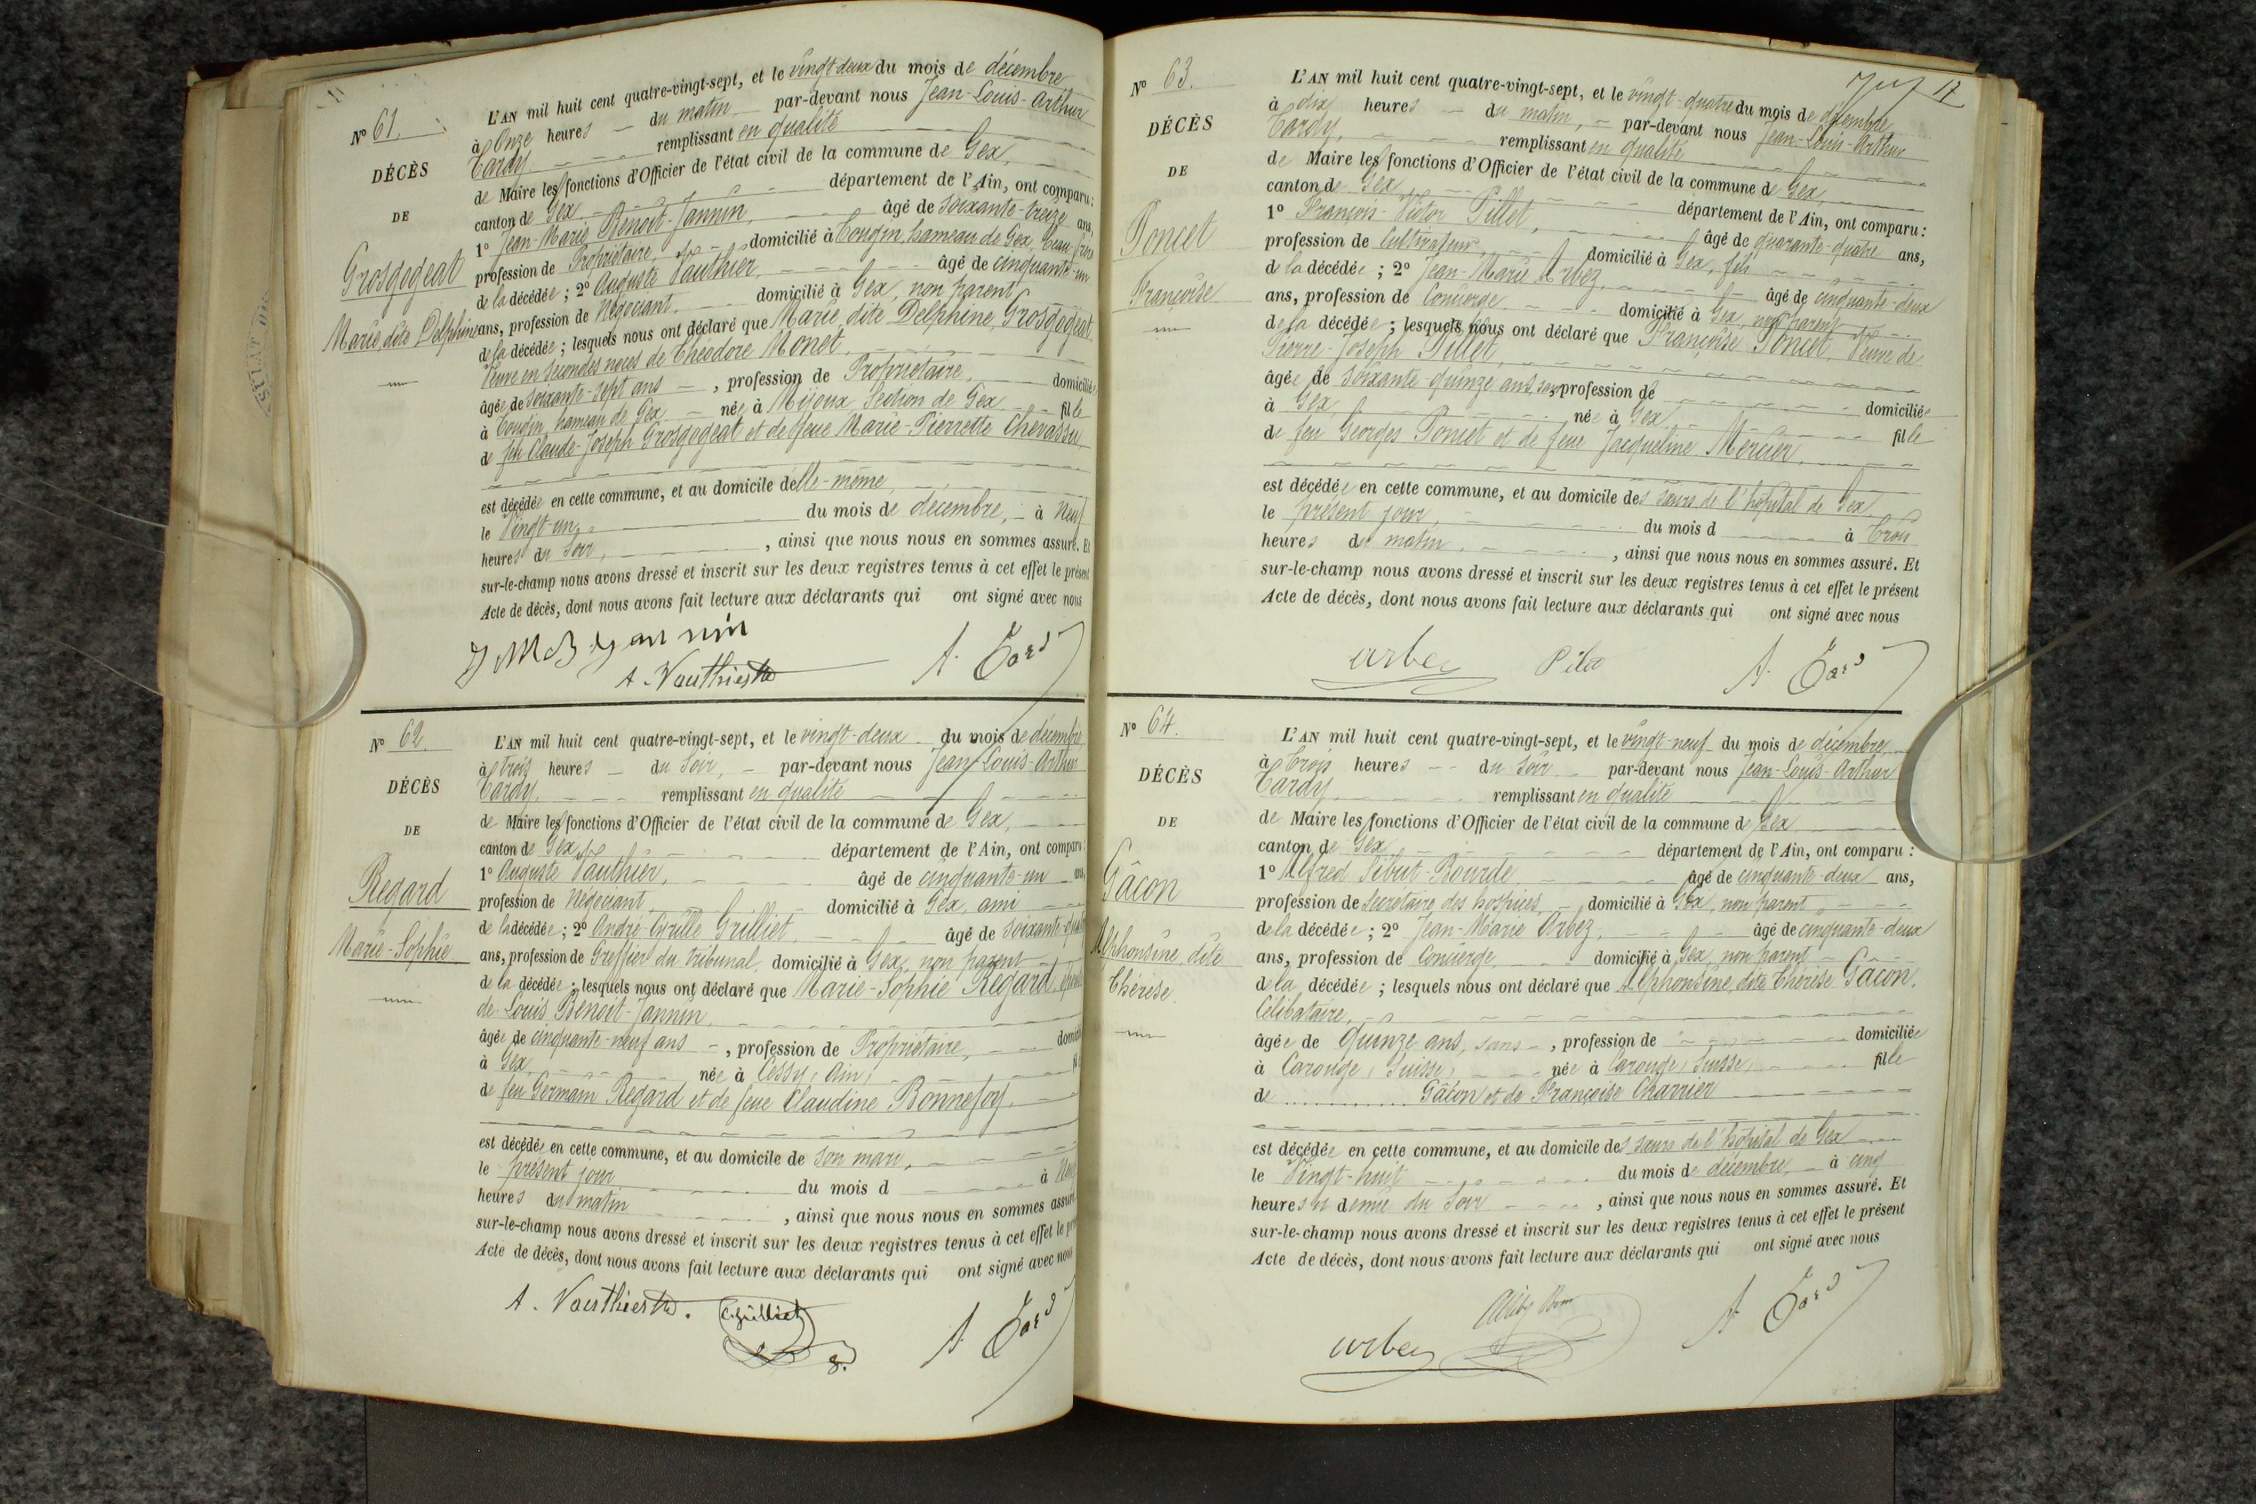 N° 61.
DÉCÈS
DE
Grosgogeat
Marie, dite Delphine
L'AN mil huit cent quatre-vingt-sept, et le vingt-deux du mois de décembre
à Onze heures du matin par-devant nous Jean-Louis-Arthur
Tardy remplissant en qualité
de Maire les fonctions d'Officier de l'état civil de la commune de Gex,
canton de Gex département de l'Ain, ont comparu :
1° Jean-Marie Benoit-Jannin, âgé de soixante-treize ans,
profession de Propriétaire, domicilié à Tougin, hameau de Gex, beau-frère
de la décédée ; 2° Auguste Vauthier, âgé de cinquante-un
ans, profession de Négociant, domicilié à Gex, non parent
de la décédée ; lesquels nous ont déclaré que Marie, dite Delphine, Grosgogeat
Veuve en secondes noces de Théodore Monet,
âgée de soixante-sept ans, profession de Propriétaire, domiciliée
à Tougin, hameau de Gex née à Mijoux, Section de Gex fille
de feu Claude-Joseph Grosgogeat et de feue Marie-Pierrette Chevassu,
est décédée en cette commune, et au domicile d'elle-même,
le Vingt-un, du mois de décembre, à Neuf
heures du soir, ainsi que nous nous en sommes assuré. Et
sur-le-champ nous avons dressé et inscrit sur les deux registres tenus à cet effet le présent
Acte de décès, dont nous avons fait lecture aux déclarants qui ont signé avec nous
J M B Jannin
A. Vauthier
A. Tardy
N° 62.
DÉCÈS
DE
Regard
Marie-Sophie
L'AN mil huit cent quatre-vingt-sept, et le vingt-deux du mois de décembre
à trois heures du soir, par-devant nous Jean-Louis-Arthur
Tardy, remplissant en qualité
de Maire les fonctions d'Officier de l'état civil de la commune de Gex,
canton de Gex, département de l'Ain, ont comparu :
1° Auguste Vauthier, âgé de cinquante-un ans,
profession de Négociant domicilié à Gex, ami
de la décédée ; 2° André-Cyrille Grilliet, âgé de soixante-quatre
ans, profession de Greffier du tribunal, domicilié à Gex, non parent
de la décédée ; lesquels nous ont déclaré que Marie-Sophie Regard, épouse
de Louis Benoit-Jannin,
âgée de cinquante-neuf ans, profession de Propriétaire, domici
à Gex née à Cessy (Ain) fil
de feu Germain Regard et de feue Claudine Bonnefoy.
est décédée en cette commune, et au domicile de son mari,
le présent jour du mois d à Neuf
heures du matin, ainsi que nous nous en sommes assuré
sur-le-champ nous avons dressé et inscrit sur les deux registres tenus à cet effet le pré
Acte de décès, dont nous avons fait lecture aux déclarants qui ont signé avec nous
A. Vauthier. C. Grilliet
A. Tardy
N° 63.
DÉCÈS
DE
Poncet
Françoise
17
L'AN mil huit cent quatre-vingt-sept, et le vingt-quatre du mois de décembre
à dix heures du matin, par-devant nous Jean-Louis-Arthur
Tardy, remplissant en qualité
de Maire les fonctions d'Officier de l'état civil de la commune de Gex,
canton de Gex département de l'Ain, ont comparu :
1° François-Victor Pillet, âgé de quarante-quatre ans,
profession de Cultivateur, domicilié à Gex, fils
de la décédée ; 2° Jean-Marie Arbez, âgé de cinquante-deux
ans, profession de Concierge domicilié à Gex, non parent
de la décédée ; lesquels nous ont déclaré que Françoise Poncet, Veuve de
Pierre-Joseph Pillet,
âgée de soixante quinze ans, sans profession de domiciliée
à Gex, née à Gex, fille
de feu Georges Poncet et de feue Jacqueline Mercier,
est décédée en cette commune, et au domicile des sœurs de l'hôpital de Gex,
le présent jour, du mois d à Trois
heures du matin, ainsi que nous nous en sommes assuré. Et
sur-le-champ nous avons dressé et inscrit sur les deux registres tenus à cet effet le présent
Acte de décès, dont nous avons fait lecture aux déclarants qui ont signé avec nous
arbez
A. Tardy
N° 64.
DÉCÈS
DE
Gâcon
Alphonsine, dite
Thérèse.
L'AN mil huit cent quatre-vingt-sept, et le vingt-neuf du mois de décembre,
à Trois heures du soir par-devant nous Jean-Louis-Arthur
Tardy, remplissant en qualité
de Maire les fonctions d'Officier de l'état civil de la commune de Gex
canton de Gex département de l'Ain, ont comparu :
1° Alfred Sibut-Bourde âgé de cinquante-deux ans,
profession de Secrétaire des hospices, domicilié à Gex, non parent
de la décédée ; 2° Jean-Marie Arbez, âgé de cinquante-deux
ans, profession de Concierge domicilié à Gex, non parent
de la décédée ; lesquels nous ont déclaré que Alphonsine, dite Thérèse Gâcon,
Célibataire,
âgée de Quinze ans, sans, profession de domiciliée
à Carouge (Suisse) née à Carouge (Suisse) fille
de ............ Gâcon et de Françoise Charrier
est décédée en cette commune, et au domicile des sœurs de l'hôpital de Gex
le Vingt-huit du mois de décembre à cinq
heures et demie du soir, ainsi que nous nous en sommes assuré. Et
sur-le-champ nous avons dressé et inscrit sur les deux registres tenus à cet effet le présent
Acte de décès, dont nous avons fait lecture aux déclarants qui ont signé avec nous
arbez
A. Tardy